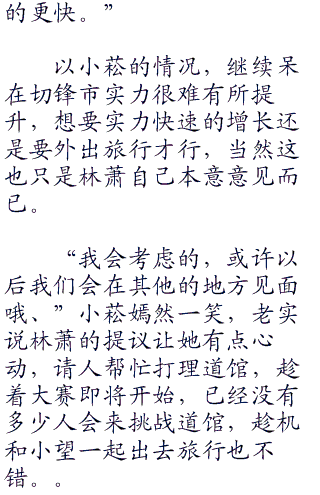 的更快。”
以小菘的情况，继续呆
在切锋市实力很难有所提
升，想要实力快速的增长还
是要外出旅行才行，当然这
也只是林萧自己本意意见而
已。
“我会考虑的，或许以
后我们会在其他的地方见面
哦、”小菘嫣然一笑，老实
说林萧的提议让她有点心
动，请人帮忙打理道馆，趁
着大赛即将开始，已经没有
多少人会来挑战道馆，趁机
和小望一起出去旅行也不
错。。